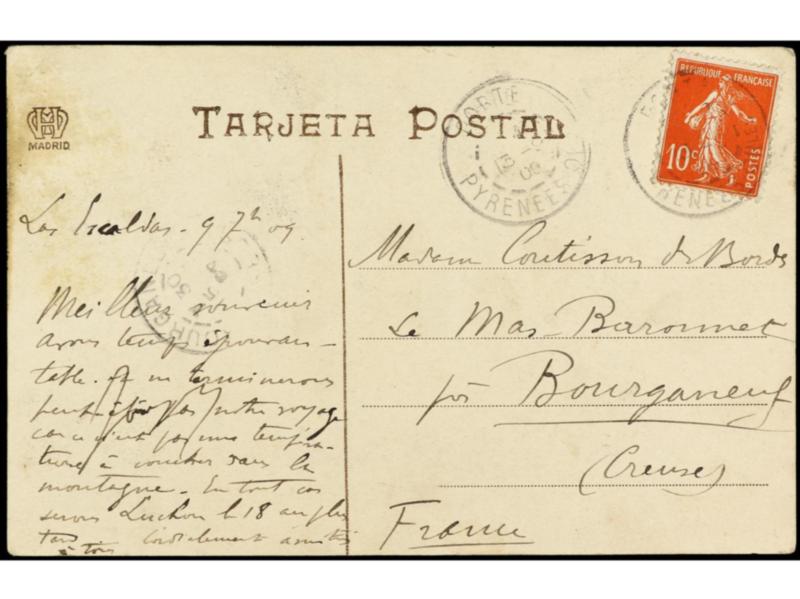 MADRID
TARJETA POSTAL
PORTÉ
12
09
PYRENEES
REPUBLIQUE FRANÇAISE
10c
POSTES
Las Escaldas - 9 7bre 09
Meilleur souvenir
avons temps épouvan-
table. et ne terminerons
peut être pas notre voyage
car ce n'est pas une tempéra-
ture à coucher dans la
montagne. En tout cas
serons Luchon le 18 au plus
tard Cordialement amitiés
à tous
Madame Coutisson de Bords
Le Mas-Baronnet
par Bourganeuf
(Creuse)
France